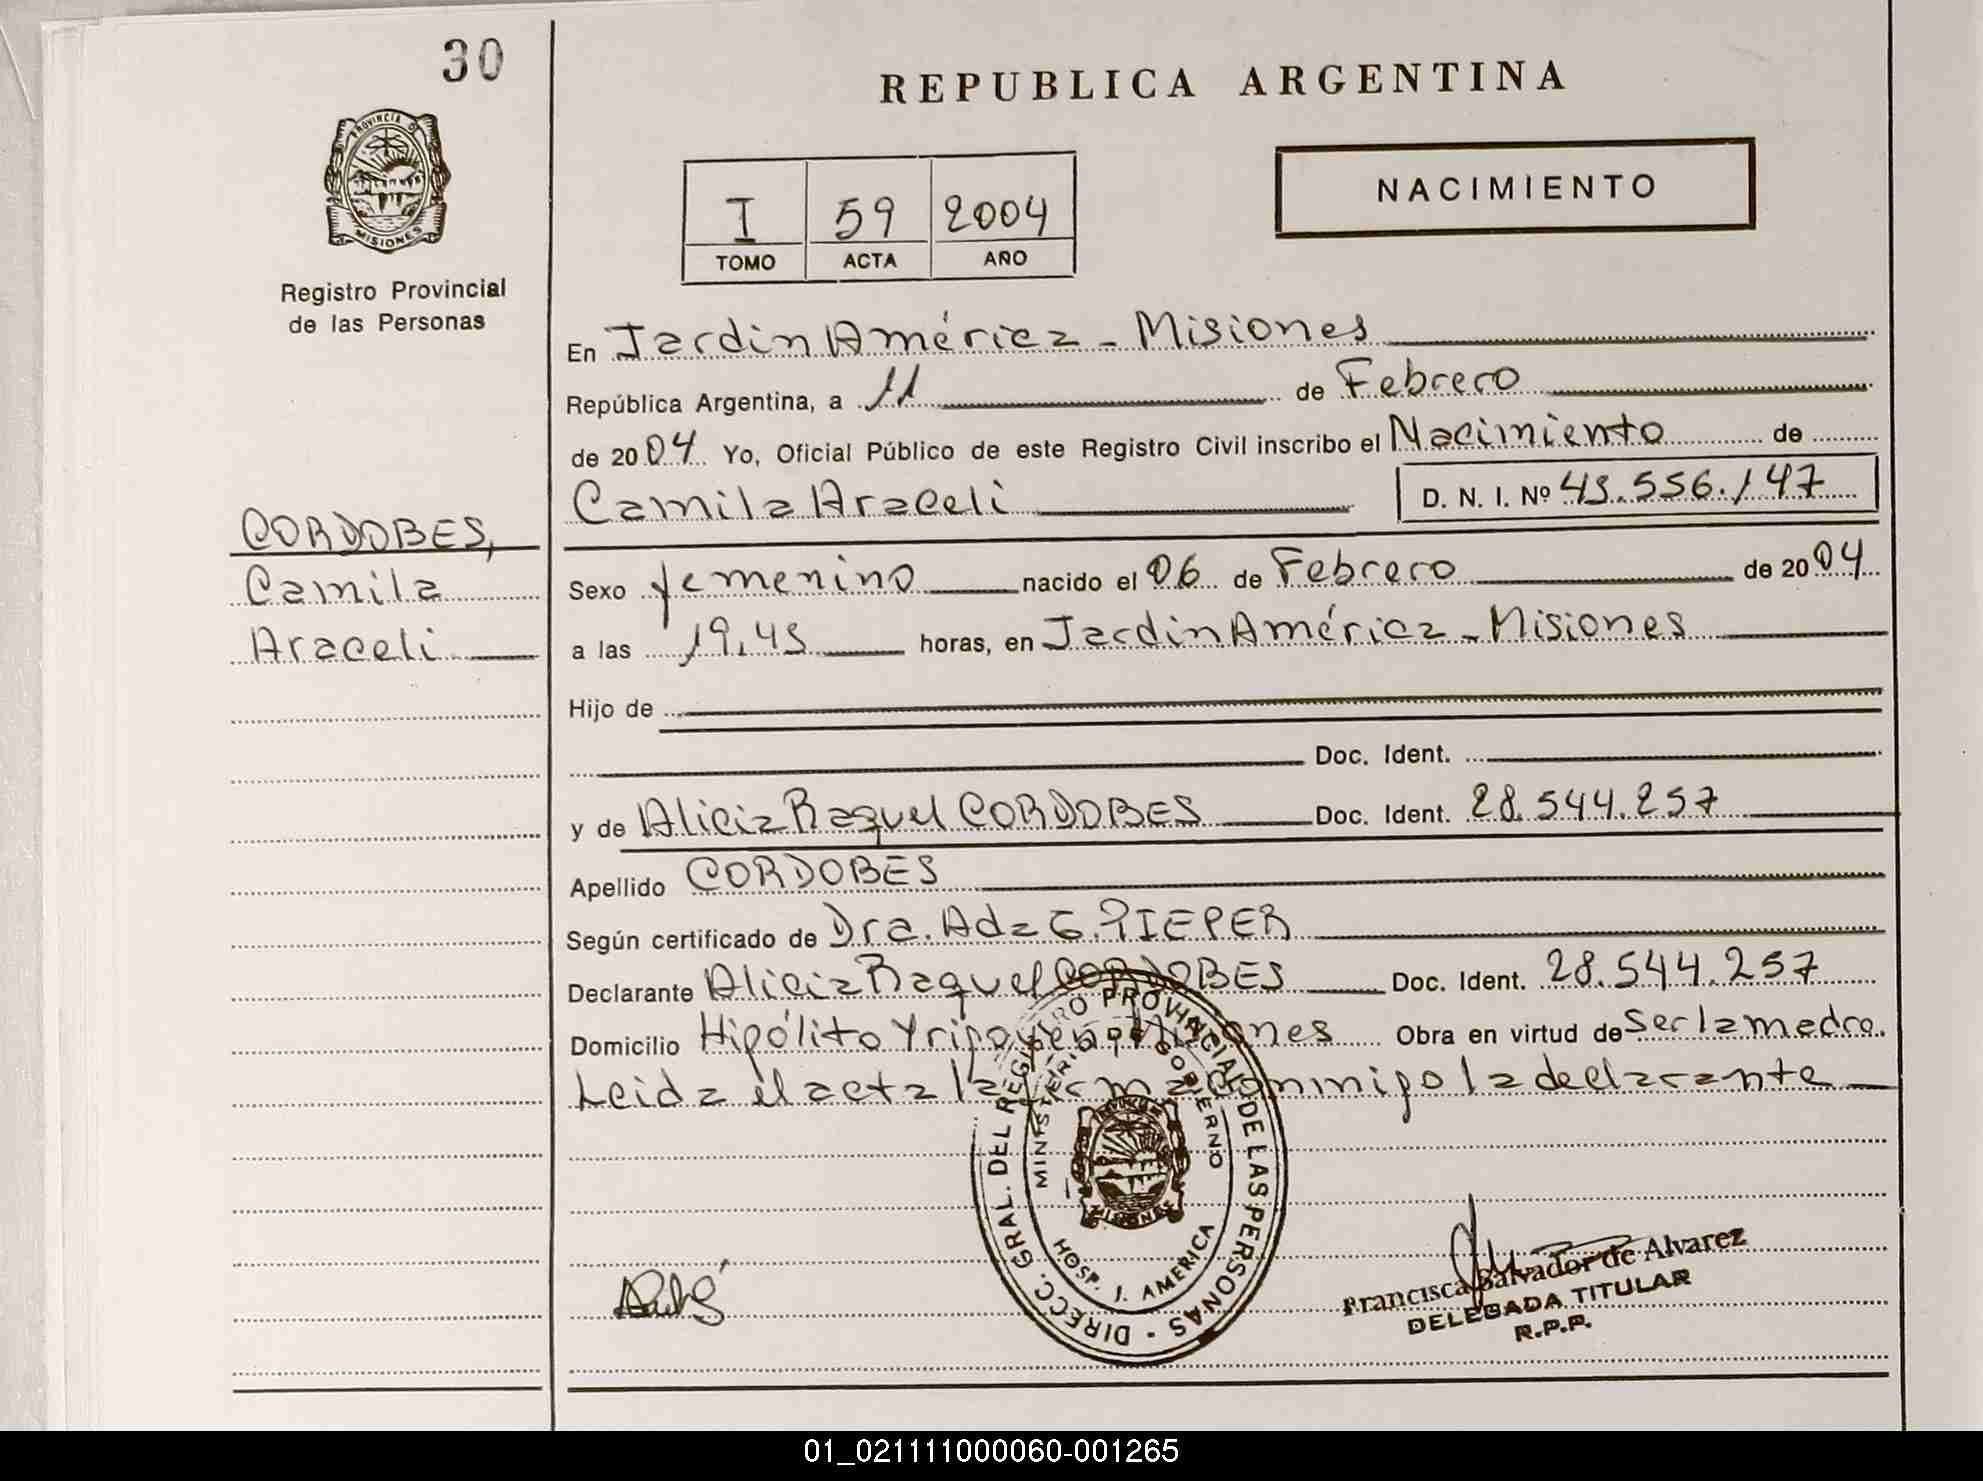 30
REPUBLICA ARGENTINA
PROVINCIA DE
MISIONES
Registro Provincial
de las Personas
I 59 2004
TOMO ACTA AÑO
NACIMIENTO
En Jardin América - Misiones
República Argentina, a 11 de Febrero
de 2004 Yo, Oficial Público de este Registro Civil inscribo el Nacimiento de
Camila Araceli D. N. I. Nº 45.556.147
CORDOBES,
Camila
Araceli
Sexo femenino nacido el 06 de Febrero de 2004
a las 19,45 horas, en Jardin América - Misiones
Hijo de
Doc. Ident.
y de Alicia Raquel CORDOBES Doc. Ident. 28.544.257
Apellido CORDOBES
Según certificado de Dra. Ada G. PIEPER
Declarante Alicia Raquel CORDOBES Doc. Ident. 28.544.257
Domicilio Hipólito Yrigoyen Misiones Obra en virtud de Ser la madre.
Leida el acta la firma conmigo la declarante
DIRECC. GRAL. DEL REGISTRO PROVINCIAL DE LAS PERSONAS
MINISTERIO DE GOBIERNO
MISIONES
HOSP. J. AMERICA
Francisca Salvador de Alvarez
DELEGADA TITULAR
R.P.P.
01_021111000060-001265